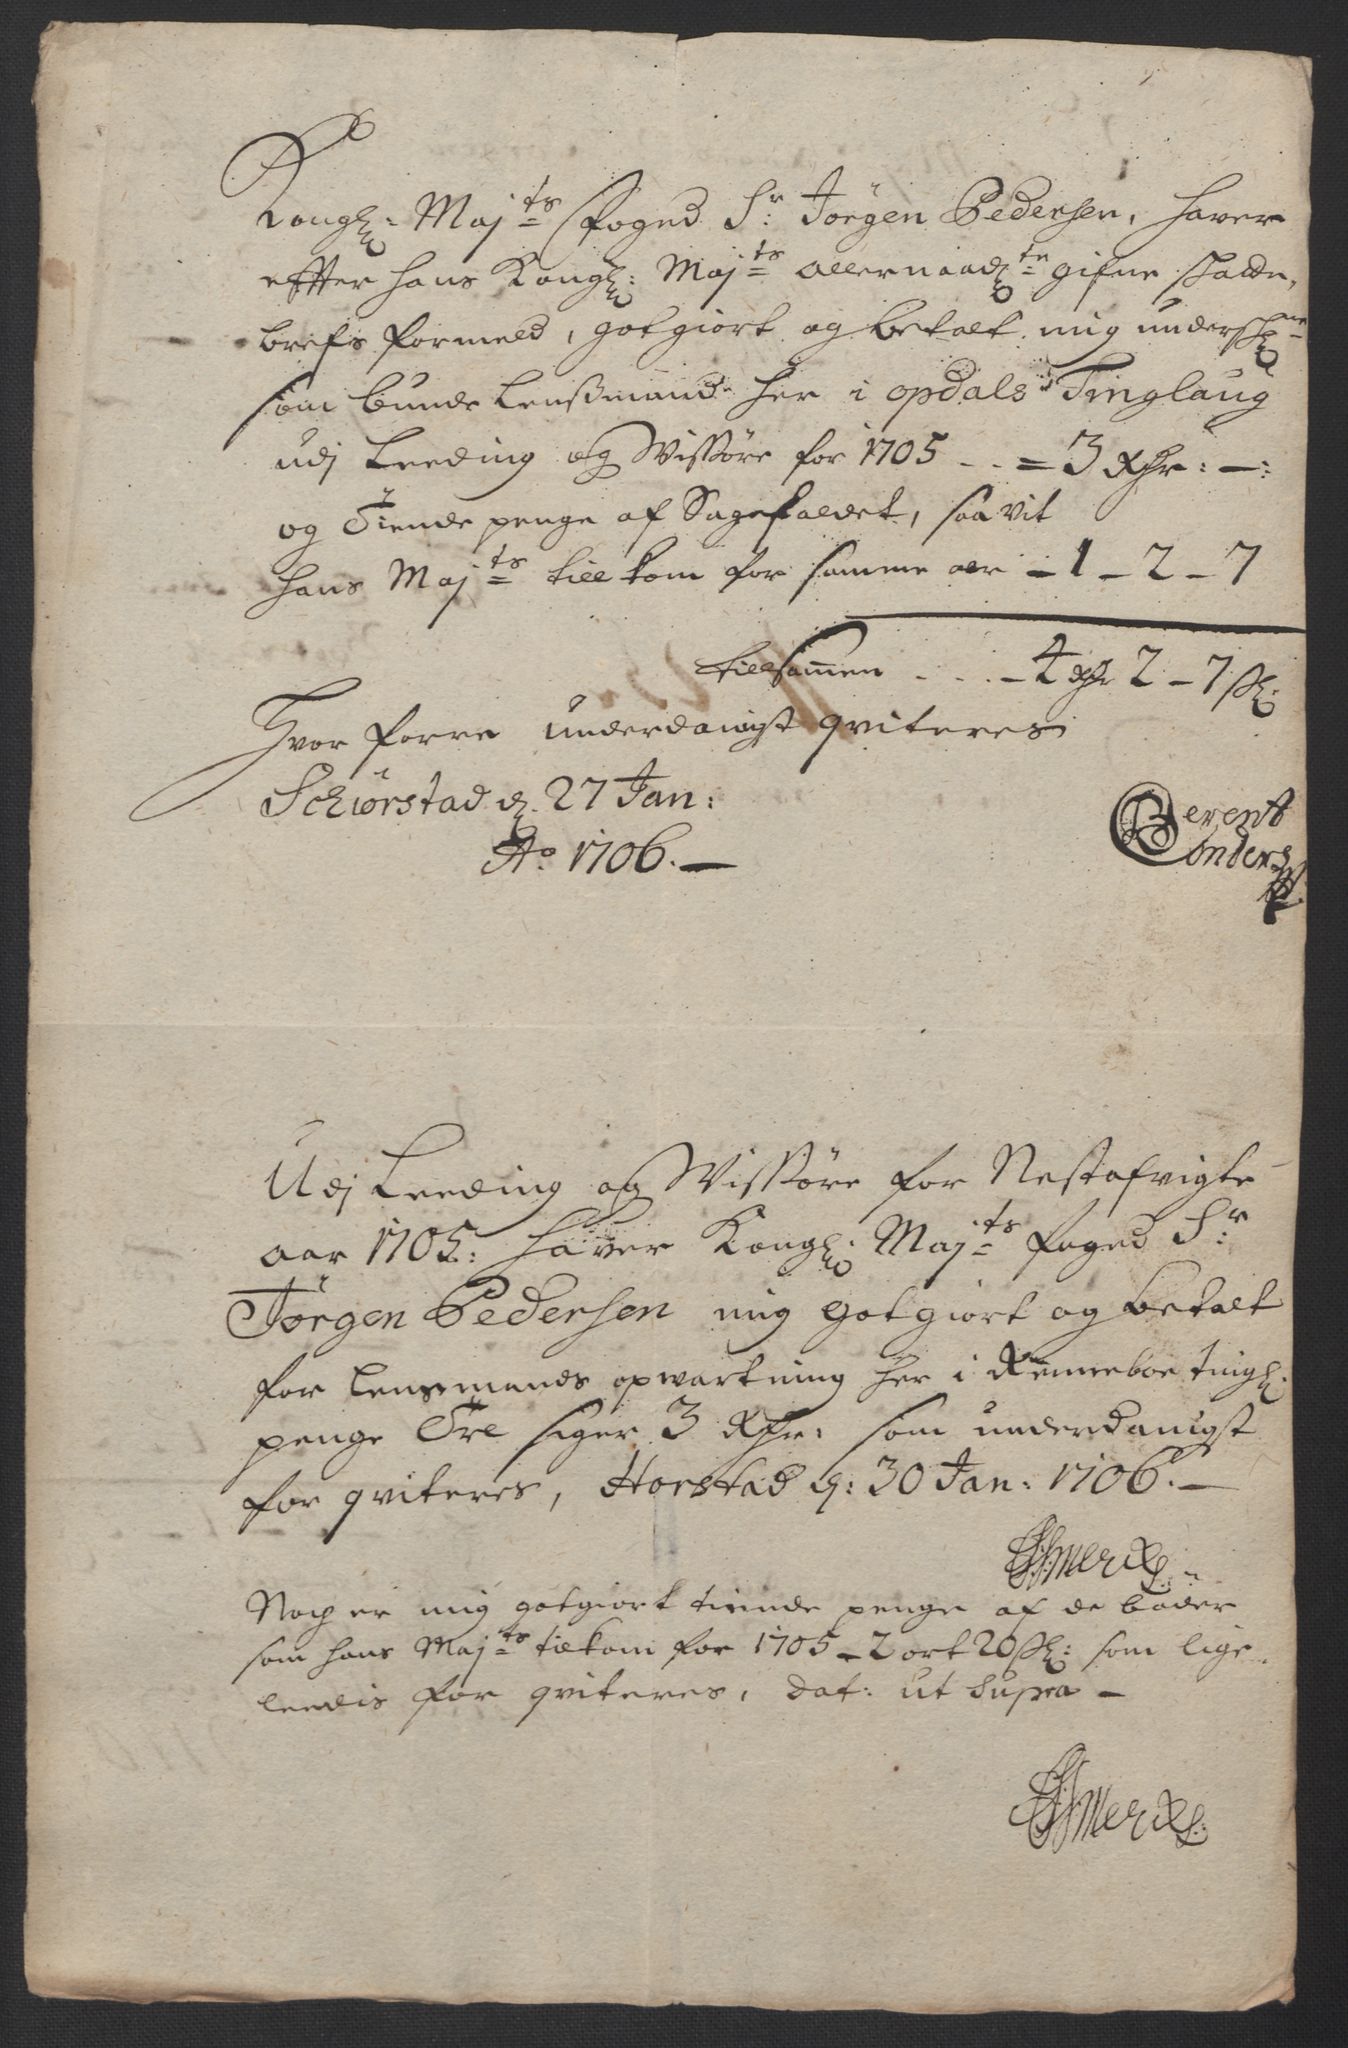 Kongl: Maj:ts foged Sr: Jörgen Pedersen, hafver
effter hans Kongl: Maj:ts allernaadl:te gifne skatte,
brefs formeld, gotgiort og betalt mig undersch:ne
som bunde Lensmand her i opdals Tinglaug
udj Leeding og Wissöre for 1705 - - = 3 Rdr: -:
og Tiende penge af Sagefaldet, saa vit
hans Maj:ts till kom for samme aar - 1 - 2 - 7
tillsamen - - - - 4 rdr 2 - 7 sk:
Hvor forre underdanigst qviteres
Schiörstad d. 27 Jan:
Ao 1706. -
Berent
Anders
Udj Leeding og Wissöre for Nestafvigte
aar 1705: hafver Kongl: Maj:ts foged Sr:
Jörgen Pedersen mig gotgiort og betalt
for lensmands opvartning her i Renneboe tingl:
penge Tre siger 3 Rdr: som underdanigst
for qviteres, Horstad d: 30 Jan: 1706. -
Noch er mig gotgiort tiende penge af de böder
som hans Maj:ts tilkom for 1705 - 2 ort 20 sk: som lige
leedis for qviteres, Dat: ut supra -